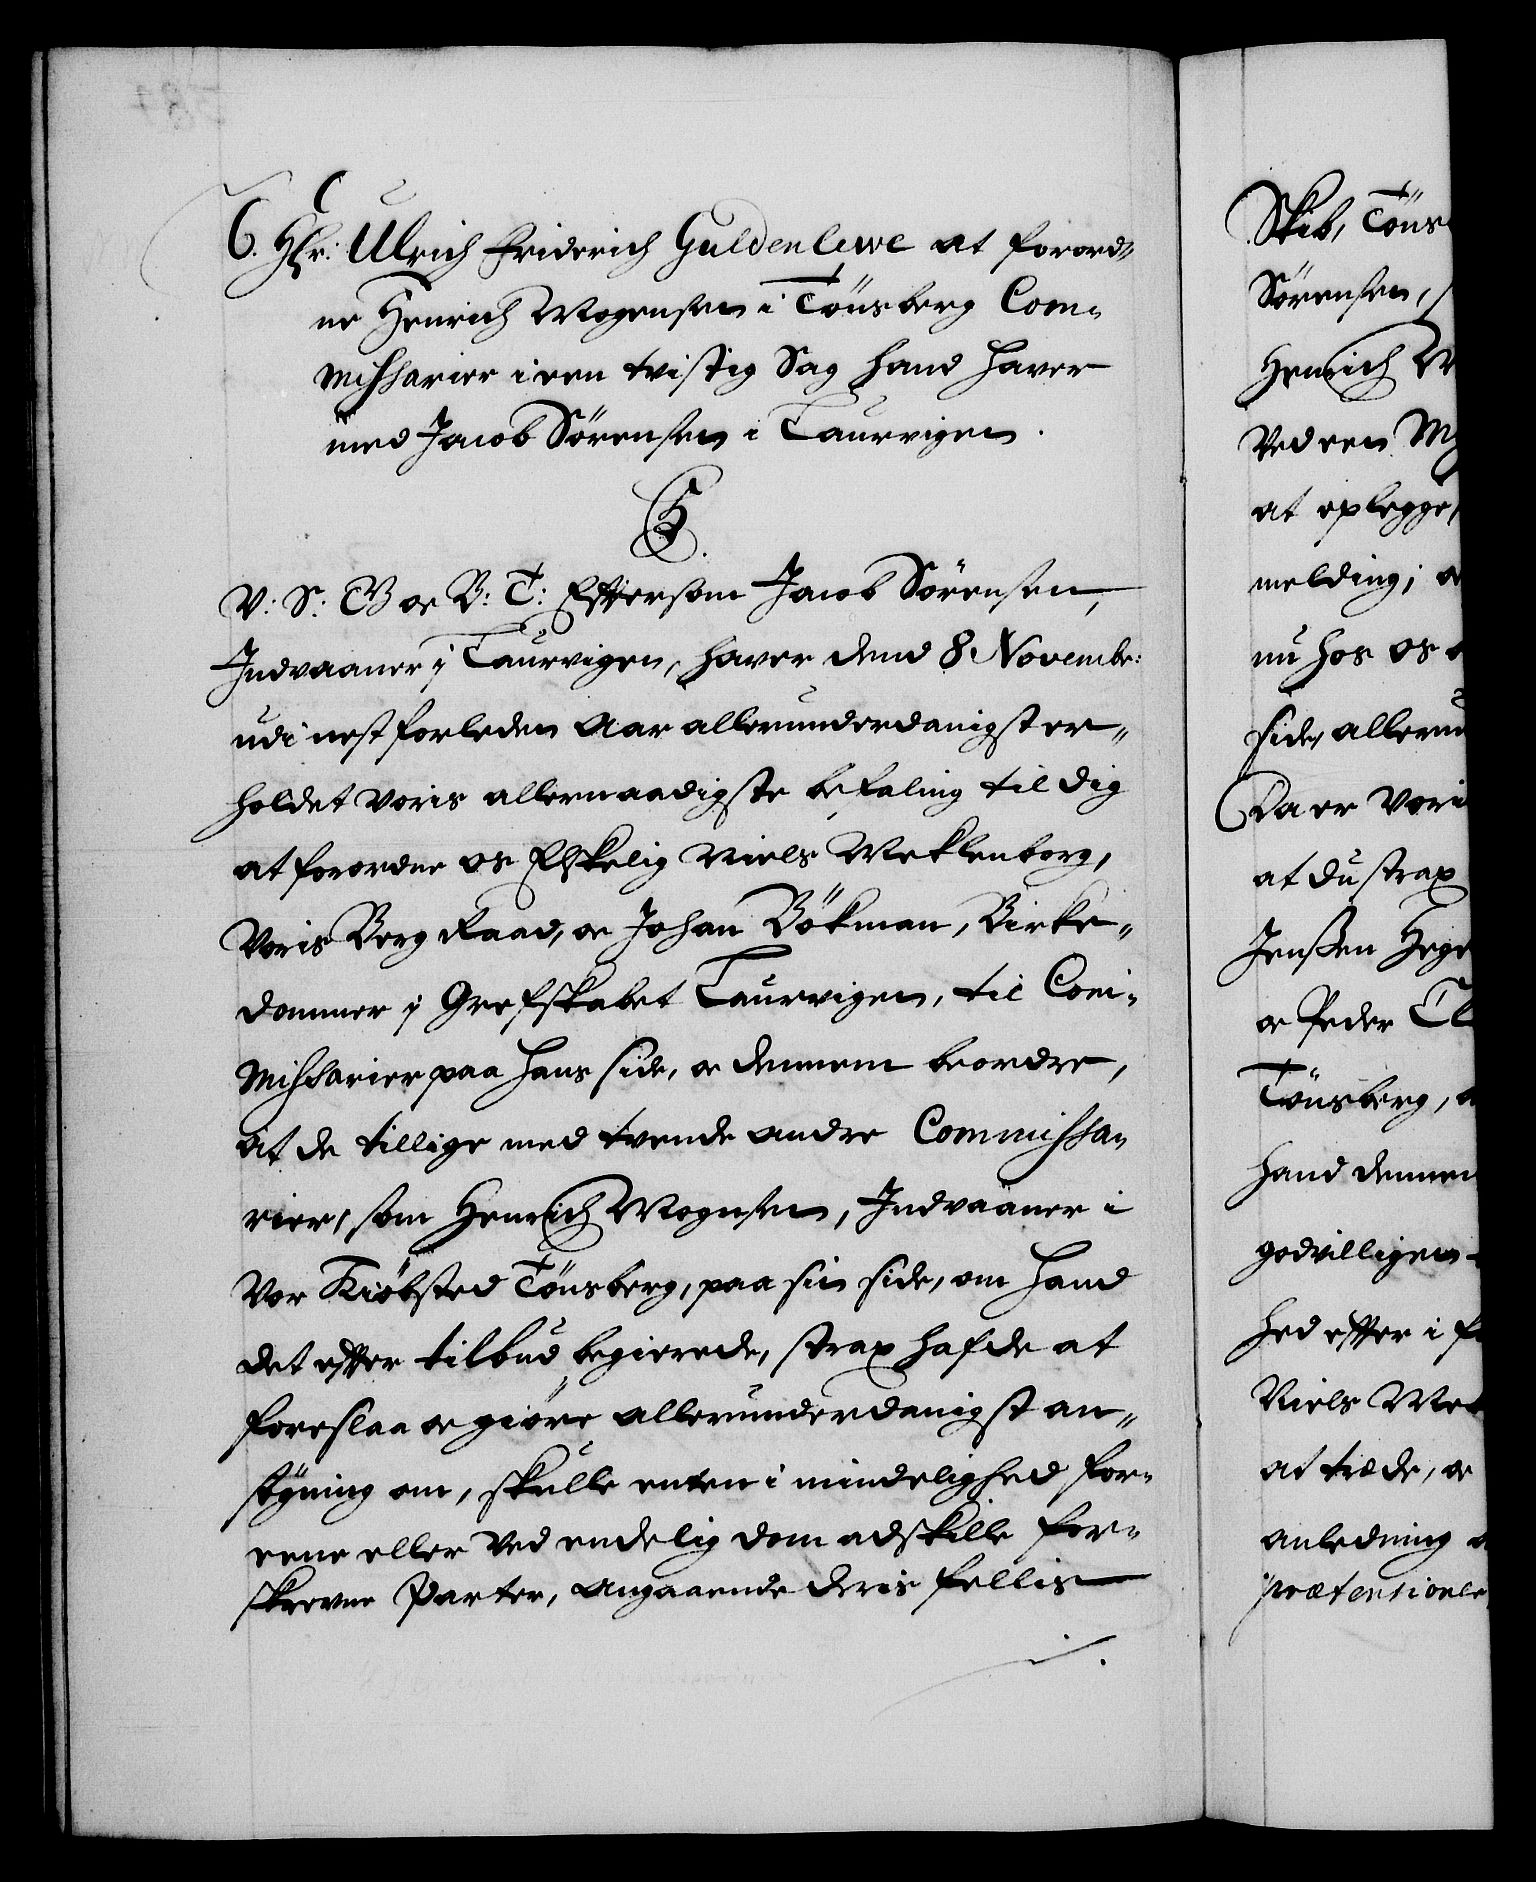 G. Hr: Ulrich Friderich Guldenlewe at forord„
ne Henrich Mogensen i Tönsberg Com„
missarier i een tvistig Sag hand haver
med Jacob Sörensen i Laurvigen.
C5.
V: S: G W oc B: T: Eftersom Jacob Sörensen,
Indvaaner j Laurvigen, haver dend 8 Novembr:
udi nestforleden Aar allerunderdanigst er„
holdet Voris allernaadigste befaling til dig
at forordne os Elskelig Niels Meklenborg,
Voris Berg Raad, oc Johan Bökman, Birke„
dommer j Grefskabet Laurvigen, til Com„
missarier paa hans side, oc dennem beordre,
at de tillige med tvende andre Commissa„
rier, som Henrich Mognsen, Indvaaner i
Vor Kiöbsted Tönsberg, paa sin side, om hand
det efter tilbud begierede, strax hafde at
foreslaa oc giöre allerunderdanigst an„
sögning om, skulle enten i mindelighed for„
eene eller ved endelig dom adskille for„
skrevne Parter, angaaende deris fellis
Skib, Töns
Sörensen,
Henrich M
Ved een
at oplegge,
melding;
nu hos os
side, alleru
Da er Vori
at du strax
Jenssen Hege
oc Peder Cl
Tönsberg,
hand dennem
godvilligen
hed efter i
Niels Mek
at træde, oc
anledning
prætentioner